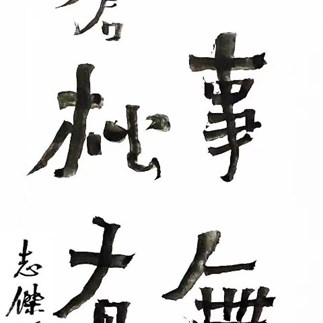 事無
松有
志傑